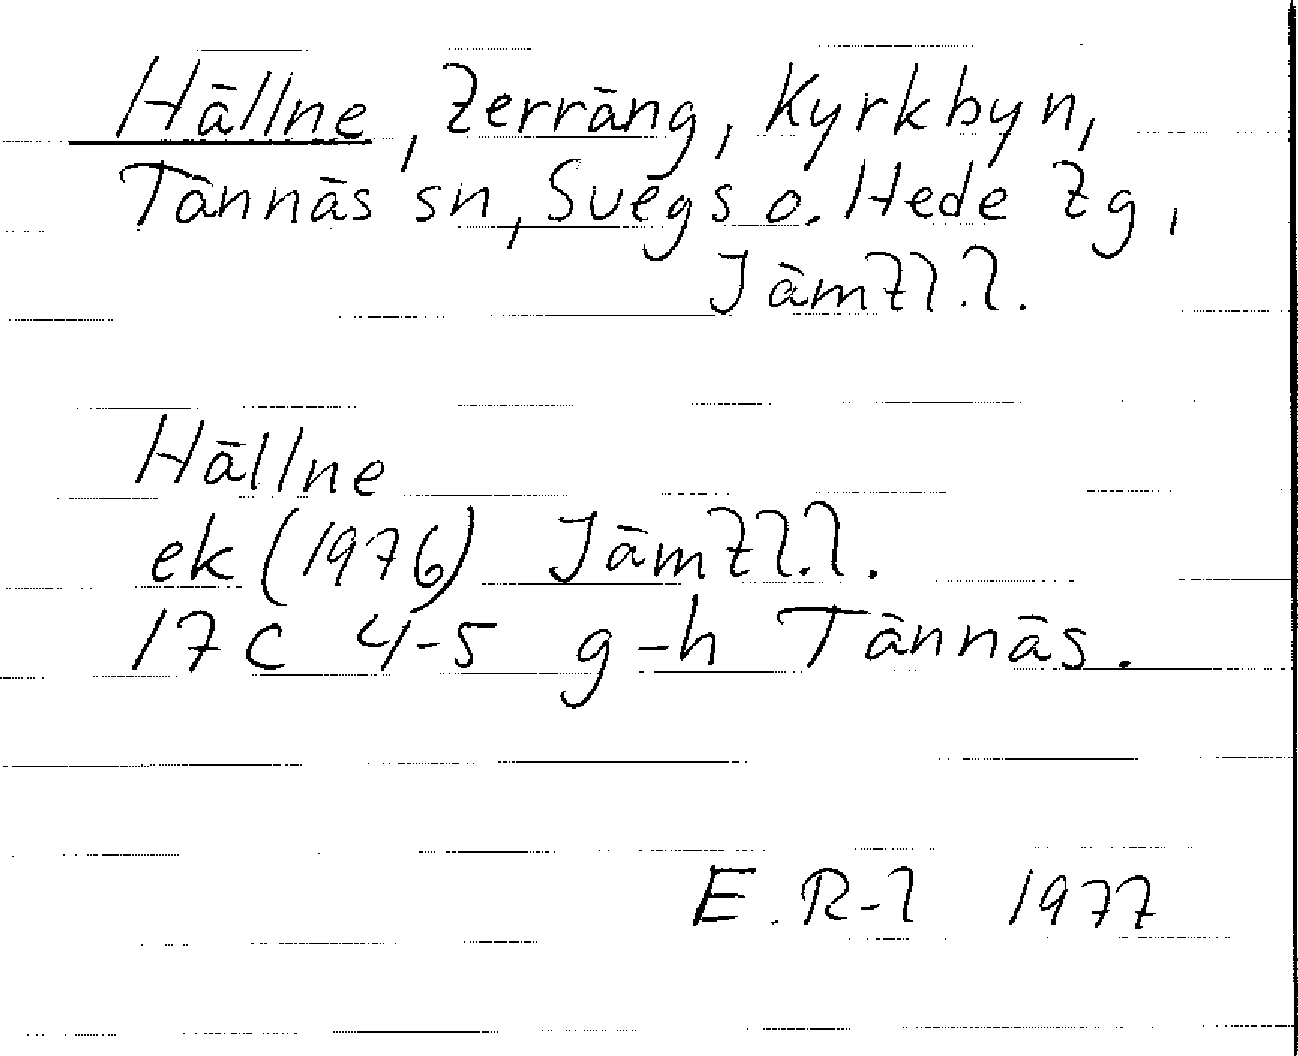 Hällne, terräng, Kyrkbyn,
Tännäs sn, Svegs o. Hede tg,
Jämtl.l.
Hällne
ek (1976) Jämtl.l.
17C 4-5 g-h Tännäs.
E. R-l 1977